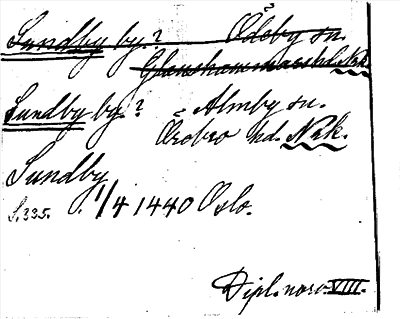 Sundby by? Ödeby sn.
Glanshammars hd. Nrk.
Sundby by? Almby sn.
Örebro hd. Nrk.
Sundby
S. 335. 1/4 1440 Oslo.
Dipl. norv. VIII.